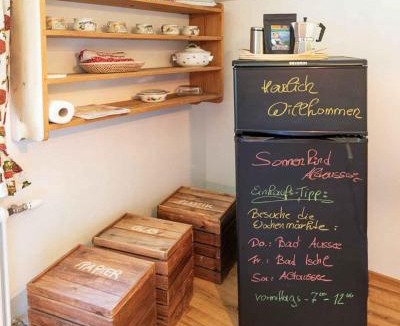 Herzlich
Willkommen
Sonnenkind
Altaussee
Einkaufs-Tipp:
Besuche die
Wochenmärkte:
Do.: Bad Aussee
Fr.: Bad Ischl
Sa.: Altaussee
vormittags - 7⁰⁰ - 12⁰⁰
PLASTIK
GLAS
PAPIER